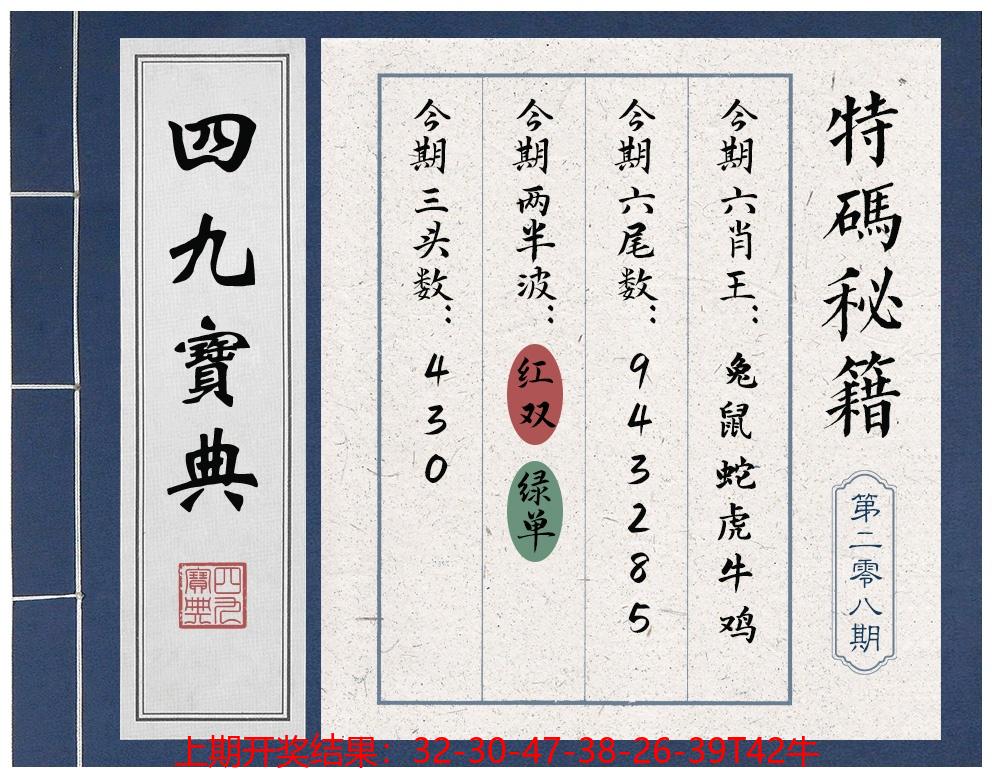 特碼秘籍
第二零八期
今期六肖王：兔鼠蛇虎牛鸡
今期六尾数：943285
今期两半波：红双 绿单
今期三头数：430
四九寶典
四九寶典
上期开奖结果：32-30-47-38-26-39T42牛